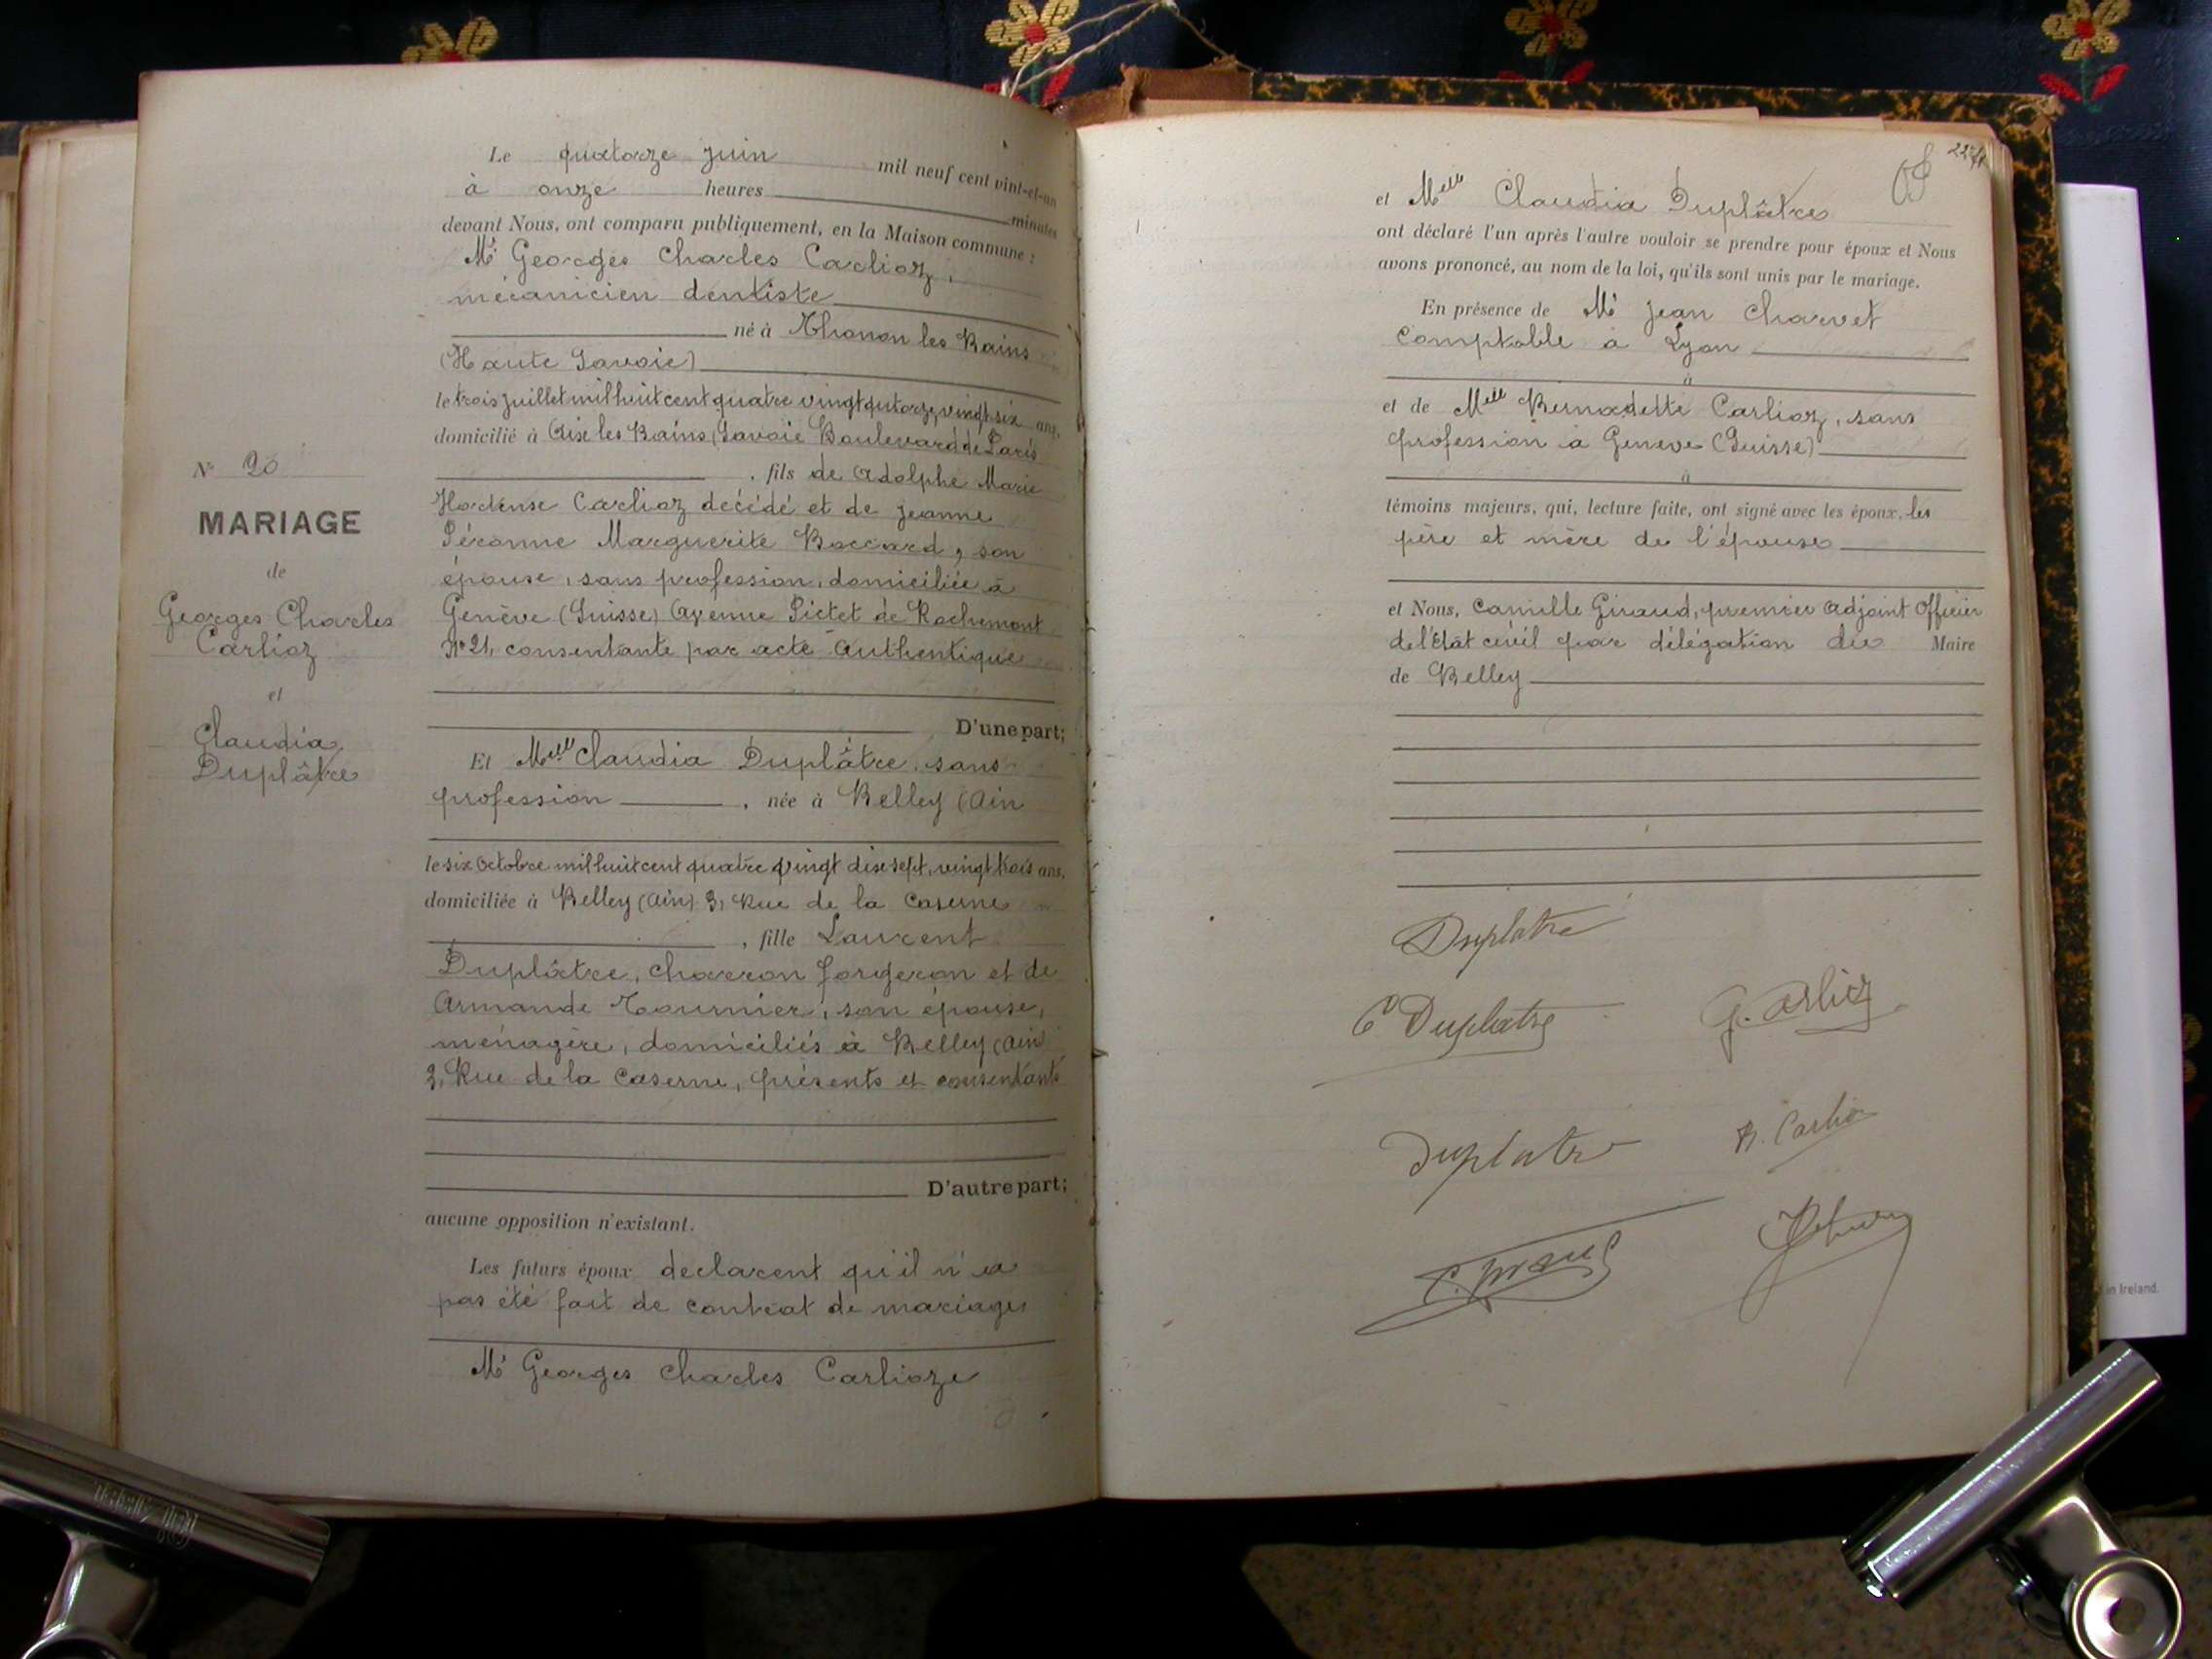 N° 20
MARIAGE
de
Georges Charles
Carlioz
et
Claudia
Duplâtre
Le quatorze juin mil neuf cent vint-et-un
à onze heures minutes
devant Nous, ont comparu publiquement, en la Maison commune :
Mr Georges Charles Carlioz,
mécanicien dentiste
né à Thonon les Bains
(Haute Savoie)
le trois juillet mil huit cent quatre vingt qutorze, vingt-six ans,
domicilié à Aix les Bains (Savoie Boulevard de Paris
, fils de Adolphe Marie
Hortense Carlioz décédé et de Jeanne
Péronne Marguerite Boccard, son
épouse, sans profession, domiciliée à
Genève (Suisse) Avenue Pictet de Rochemont
N° 21, consentante par acte Authentique
D'une part;
Et Melle Claudia Duplâtre, sans
profession , née à Belley (Ain
le six Octobre mil huit cent quatre vingt dix sept, vingt trois ans,
domiciliée à Belley (Ain) 3, Rue de la Caserne
, fille Laurent
Duplâtre, charron forgeron et de
Armande Tournier, son épouse,
ménagère, domiciliés à Belley (Ain)
3, Rue de la Caserne, présents et consentants
D'autre part;
aucune opposition n'existant.
Les futurs époux declarent qu'il n'a
pas été fait de contrat de mariage
Mr Georges Charles Carlioze
et Melle Claudia Duplâtre
ont déclaré l'un après l'autre vouloir se prendre pour époux et Nous
avons prononcé, au nom de la loi, qu'ils sont unis par le mariage.
En présence de Mr Jean Charvet
Comptable à Lyon
à
et de Melle Bernadette Carlioz, sans
profession à Geneve (Suisse)
à
témoins majeurs, qui, lecture faite, ont signé avec les époux, les
père et mère de l'épouse
et Nous, Camille Giraud, premier Adjoint Officier
de l'Etât civil par délégation du Maire
de Belley
Duplatre
C Duplatre
G. Carlioz
Duplatre
B. Carlioz
in Ireland.